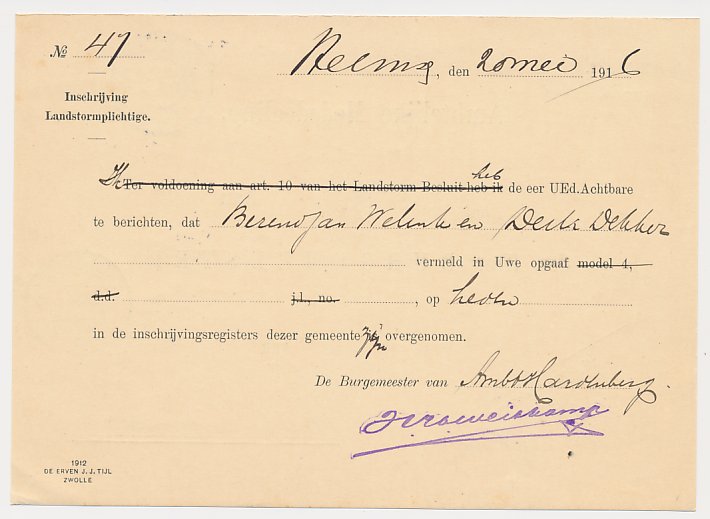 № 47
Heemse, den 20 mei 1916
Inschrijving
Landstormplichtige.
Ik Ter voldoening aan art. 10 van het Landstorm Besluit heb ik heb de eer UEd.Achtbare
te berichten, dat Berend Jan Welink en Derk Dekker
vermeld in Uwe opgaaf model 4,
d.d. j.l., no. , op heden
in de inschrijvingsregisters dezer gemeente zijn overgenomen.
De Burgemeester van Ambt Hardenberg.
1912
DE ERVEN J. J. TIJL
ZWOLLE